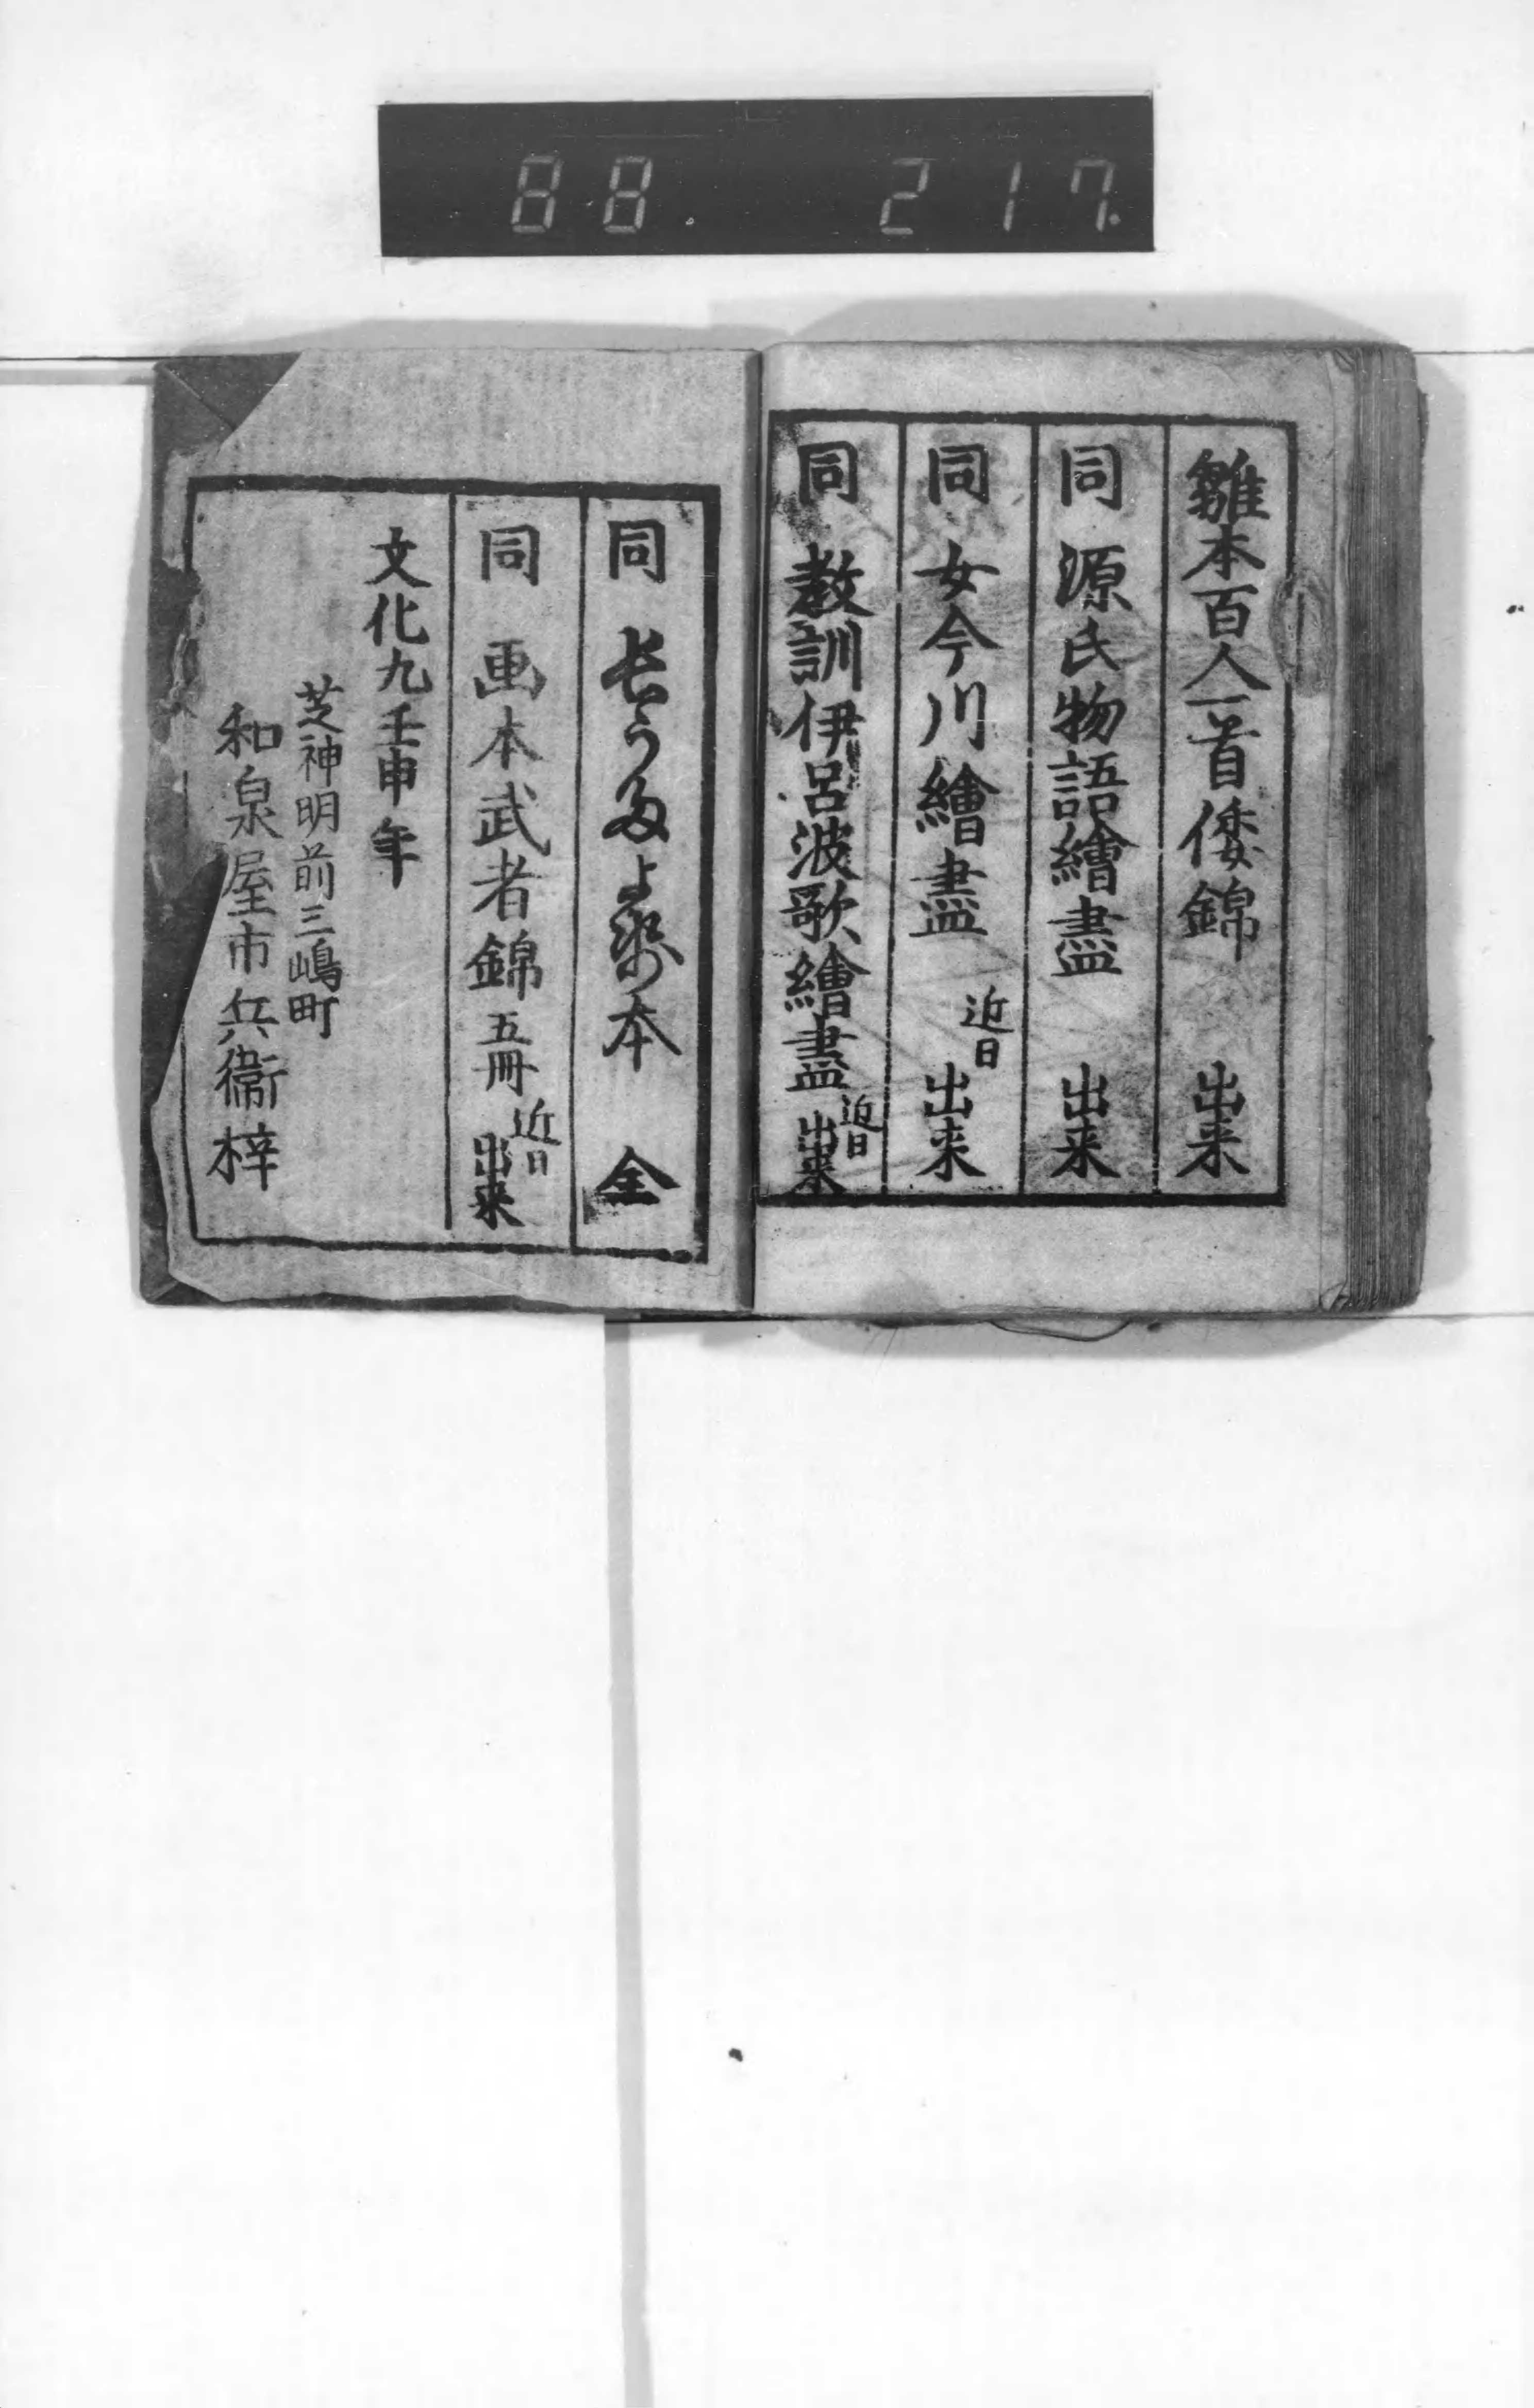 88. 217.
雛本百人一首倭錦 出来
同 源氏物語繪盡 出来
同 女今川繪盡 近日出来
同 教訓伊呂波歌繪盡 近日出来
同 長うた 本 全
同 画本武者錦五冊 近日出来
文化九壬申年
芝神明前三嶋町
和泉屋市兵衞梓